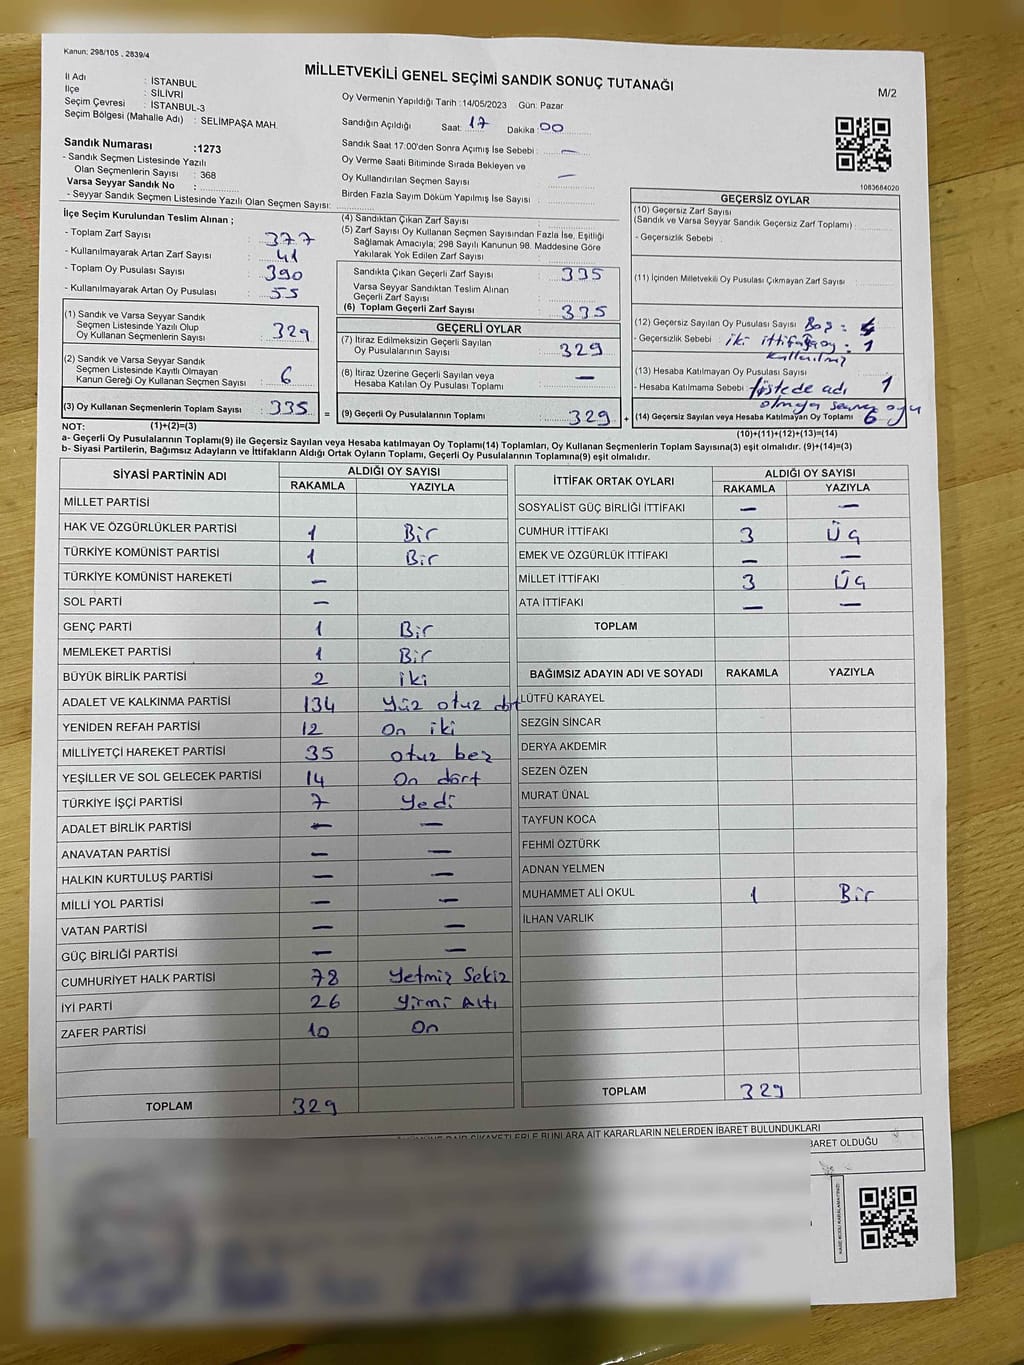 Kanun: 298/105 , 2839/4
MİLLETVEKİLİ GENEL SEÇİMİ SANDIK SONUÇ TUTANAĞI
M/2
İl Adı : İSTANBUL
İlçe : SİLİVRİ
Seçim Çevresi : İSTANBUL-3
Seçim Bölgesi (Mahalle Adı) : SELİMPAŞA MAH.
Sandık Numarası :1273
- Sandık Seçmen Listesinde Yazılı
Olan Seçmenlerin Sayısı : 368
Varsa Seyyar Sandık No :
- Seyyar Sandık Seçmen Listesinde Yazılı Olan Seçmen Sayısı:
Oy Vermenin Yapıldığı Tarih :14/05/2023 Gün: Pazar
Sandığın Açıldığı Saat: 17 Dakika: 00
Sandık Saat 17:00'den Sonra Açımış İse Sebebi : —
Oy Verme Saati Bitiminde Sırada Bekleyen ve
Oy Kullandırılan Seçmen Sayısı : —
Birden Fazla Sayım Döküm Yapılmış İse Sayısı :
1083684020
İlçe Seçim Kurulundan Teslim Alınan ;
- Toplam Zarf Sayısı : 377
- Kullanılmayarak Artan Zarf Sayısı : 41
- Toplam Oy Pusulası Sayısı : 390
- Kullanılmayarak Artan Oy Pusulası : 55
(1) Sandık ve Varsa Seyyar Sandık
Seçmen Listesinde Yazılı Olup
Oy Kullanan Seçmenlerin Sayısı : 329
(2) Sandık ve Varsa Seyyar Sandık
Seçmen Listesinde Kayıtlı Olmayan
Kanun Gereği Oy Kullanan Seçmen Sayısı : 6
(3) Oy Kullanan Seçmenlerin Toplam Sayısı : 335 =
(4) Sandıktan Çıkan Zarf Sayısı :
(5) Zarf Sayısı Oy Kullanan Seçmen Sayısından Fazla İse, Eşitliği
Sağlamak Amacıyla; 298 Sayılı Kanunun 98. Maddesine Göre
Yakılarak Yok Edilen Zarf Sayısı :
Sandıkta Çıkan Geçerli Zarf Sayısı : 335
Varsa Seyyar Sandıktan Teslim Alınan
Geçerli Zarf Sayısı :
(6) Toplam Geçerli Zarf Sayısı : 335
GEÇERLİ OYLAR
(7) İtiraz Edilmeksizin Geçerli Sayılan
Oy Pusulalarının Sayısı : 329
(8) İtiraz Üzerine Geçerli Sayılan veya
Hesaba Katılan Oy Pusulası Toplamı : —
(9) Geçerli Oy Pusulalarının Toplamı : 329 +
GEÇERSİZ OYLAR
(10) Geçersiz Zarf Sayısı
(Sandık ve Varsa Seyyar Sandık Geçersiz Zarf Toplamı) :
- Geçersizlik Sebebi :
(11) İçinden Milletvekili Oy Pusulası Çıkmayan Zarf Sayısı :
(12) Geçersiz Sayılan Oy Pusulası Sayısı : Boş :
- Geçersizlik Sebebi : iki ittifağa oy : 1
kullanılmış
(13) Hesaba Katılmayan Oy Pusulası Sayısı :
- Hesaba Katılmama Sebebi : listede adı 1
olmayan seçmen oyu
(14) Geçersiz Sayılan veya Hesaba Katılmayan Oy Toplamı : 6
NOT: (1)+(2)=(3)
(10)+(11)+(12)+(13)=(14)
a- Geçerli Oy Pusulalarının Toplamı(9) ile Geçersiz Sayılan veya Hesaba katılmayan Oy Toplamı(14) Toplamları, Oy Kullanan Seçmenlerin Toplam Sayısına(3) eşit olmalıdır. (9)+(14)=(3)
b- Siyasi Partilerin, Bağımsız Adayların ve İttifakların Aldığı Ortak Oyların Toplamı, Geçerli Oy Pusulalarının Toplamına(9) eşit olmalıdır.
SİYASİ PARTİNİN ADI ALDIĞI OY SAYISI
RAKAMLA YAZIYLA
MİLLET PARTİSİ
HAK VE ÖZGÜRLÜKLER PARTİSİ 1 Bir
TÜRKİYE KOMÜNİST PARTİSİ 1 Bir
TÜRKİYE KOMÜNİST HAREKETİ —
SOL PARTİ —
GENÇ PARTİ 1 Bir
MEMLEKET PARTİSİ 1 Bir
BÜYÜK BİRLİK PARTİSİ 2 iki
ADALET VE KALKINMA PARTİSİ 134 Yüz otuz dört
YENİDEN REFAH PARTİSİ 12 On iki
MİLLİYETÇİ HAREKET PARTİSİ 35 otuz beş
YEŞİLLER VE SOL GELECEK PARTİSİ 14 On dört
TÜRKİYE İŞÇİ PARTİSİ 7 Yedi
ADALET BİRLİK PARTİSİ — —
ANAVATAN PARTİSİ — —
HALKIN KURTULUŞ PARTİSİ — —
MİLLİ YOL PARTİSİ — —
VATAN PARTİSİ — —
GÜÇ BİRLİĞİ PARTİSİ — —
CUMHURİYET HALK PARTİSİ 78 Yetmiş Sekiz
İYİ PARTİ 26 Yirmi Altı
ZAFER PARTİSİ 10 On
TOPLAM 329
İTTİFAK ORTAK OYLARI ALDIĞI OY SAYISI
RAKAMLA YAZIYLA
SOSYALİST GÜÇ BİRLİĞİ İTTİFAKI — —
CUMHUR İTTİFAKI 3 Üç
EMEK VE ÖZGÜRLÜK İTTİFAKI — —
MİLLET İTTİFAKI 3 Üç
ATA İTTİFAKI — —
TOPLAM
BAĞIMSIZ ADAYIN ADI VE SOYADI RAKAMLA YAZIYLA
LÜTFÜ KARAYEL
SEZGİN SİNCAR
DERYA AKDEMİR
SEZEN ÖZEN
MURAT ÜNAL
TAYFUN KOCA
FEHMİ ÖZTÜRK
ADNAN YELMEN
MUHAMMET ALİ OKUL 1 Bir
İLHAN VARLIK
TOPLAM 329
ŞİKAYETLERLE BUNLARA AİT KARARLARIN NELERDEN İBARET BULUNDUKLARI
BARET OLDUĞU